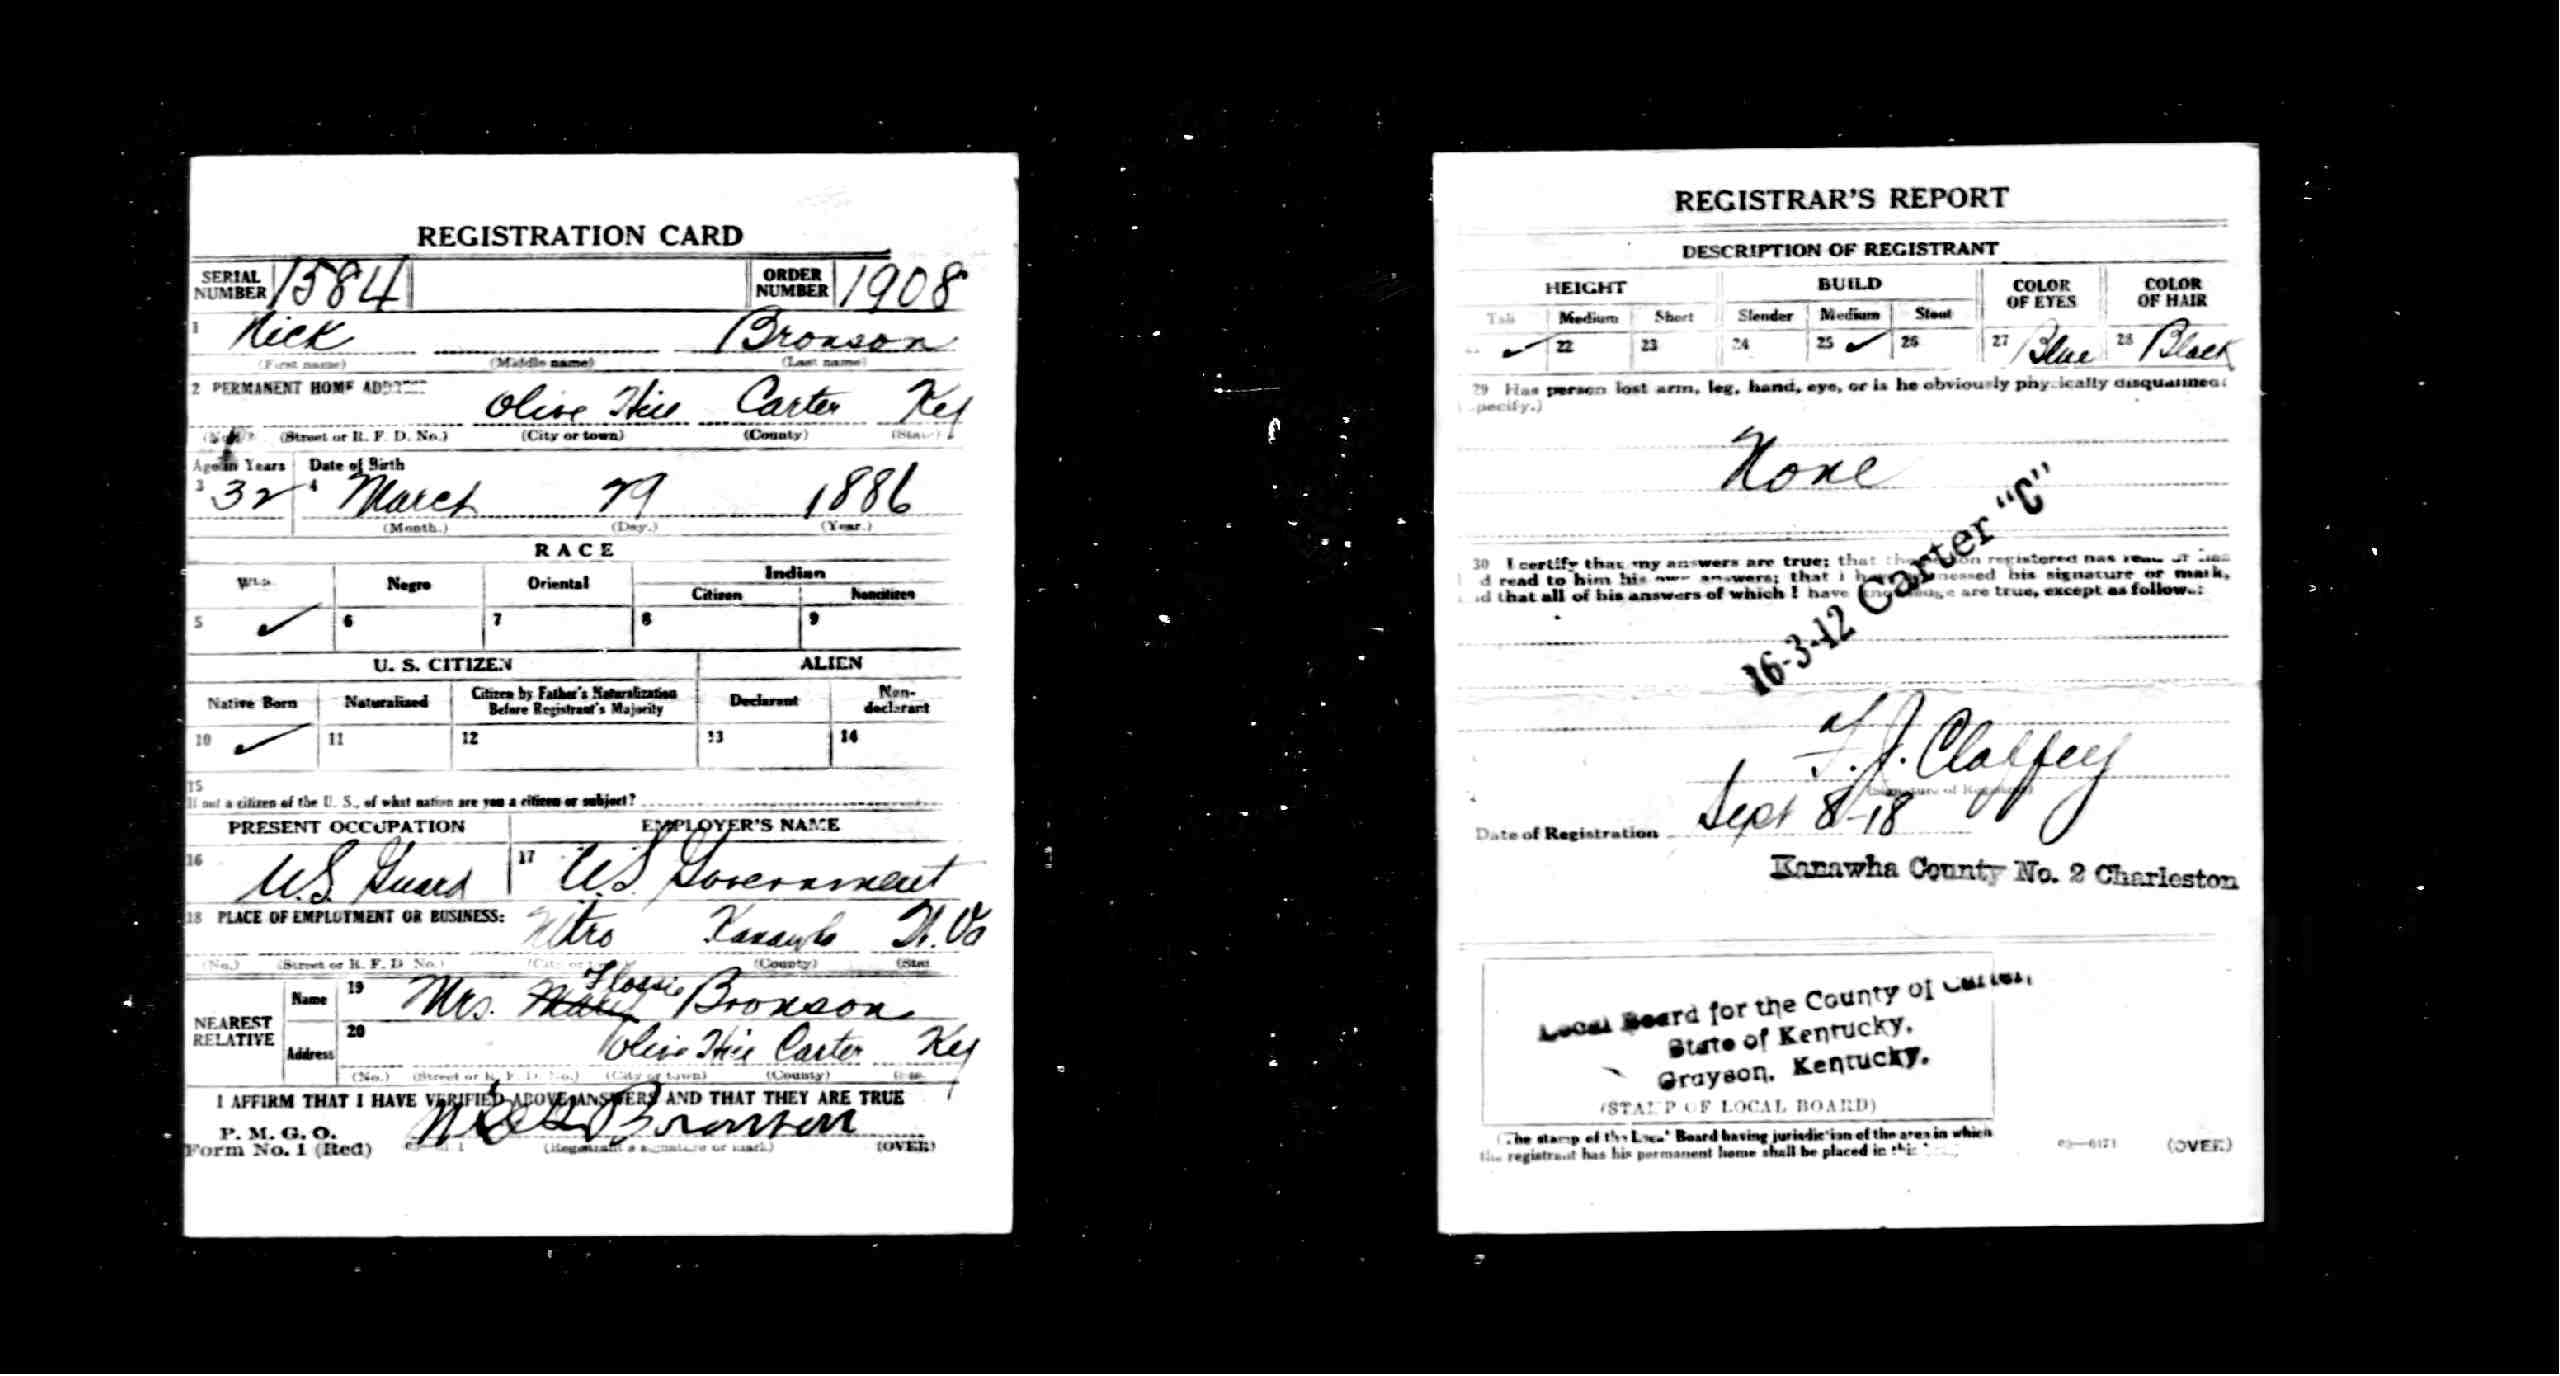 REGISTRATION CARD
SERIAL NUMBER 1584 ORDER NUMBER 1908
1 Nick Bronson
(First name) (Middle name) (Last name)
2 PERMANENT HOME ADDRESS
Olive Hill Carter Ky
(No.) (Street or R. F. D. No.) (City or town) (County) (State)
Age in Years Date of Birth
3 32 4 March 29 1886
(Month.) (Day.) (Year.)
RACE
White Negro Oriental Indian
Citizen Noncitizen
5 ✓ 6 7 8 9
U. S. CITIZEN ALIEN
Native Born Naturalized Citizen by Father's Naturalization Before Registrant's Majority Declarant Non-declarant
10 ✓ 11 12 13 14
15
If not a citizen of the U. S., of what nation are you a citizen or subject?
PRESENT OCCUPATION EMPLOYER'S NAME
16 U.S. Guard 17 U.S. Government
18 PLACE OF EMPLOYMENT OR BUSINESS:
Nitro Kanawha W. Va
(No.) (Street or R. F. D. No.) (City or town) (County) (State)
NEAREST RELATIVE
Name 19 Mrs. Flossie Bronson
Address 20 Olive Hill Carter Ky
(No.) (Street or R. F. D. No.) (City or town) (County) (State)
I AFFIRM THAT I HAVE VERIFIED ABOVE ANSWERS AND THAT THEY ARE TRUE
P. M. G. O.
Form No. 1 (Red) Nick Bronson
(Registrant's signature or mark) (OVER)
REGISTRAR'S REPORT
DESCRIPTION OF REGISTRANT
HEIGHT BUILD COLOR OF EYES COLOR OF HAIR
Tall Medium Short Slender Medium Stout
✓ 22 23 24 25 ✓ 26 27 Blue 28 Black
29 Has person lost arm, leg, hand, eye, or is he obviously physically disqualified?
(Specify.)
None
30 I certify that my answers are true; that the person registered has read or has
had read to him his own answers; that I have witnessed his signature or mark,
and that all of his answers of which I have knowledge are true, except as follows:
16-3-12 Carter "C"
J. Claffey
(Signature of Registrar)
Date of Registration Sept 8-18
Kanawha County No. 2 Charleston
Local Board for the County of Carter,
State of Kentucky,
Grayson, Kentucky.
(STAMP OF LOCAL BOARD)
(The stamp of the Local Board having jurisdiction of the area in which
the registrant has his permanent home shall be placed in this
(OVER)